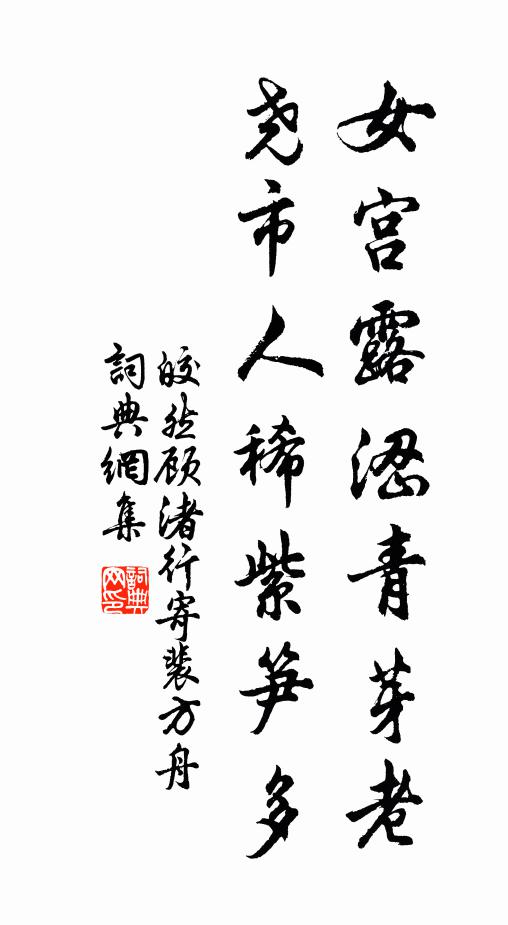 女宫露澀青芽老
尧市人稀紫笋多
皎然顾渚行寄裴方舟
詞典網集
詞典网印